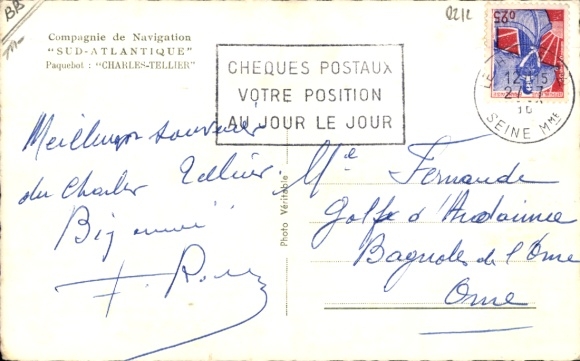 BB
0212
Compagnie de Navigation
"SUD-ATLANTIQUE"
Paquebot : "CHARLES-TELLIER"
CHEQUES POSTAUX
VOTRE POSITION
AU JOUR LE JOUR
0,25
12-15
27-7
SEINE MME
Meilleurs souvenirs
du Charles Tellier.
Photo Véritable
Mlle Fernande
Golfe d'Andaine
Bagnoles de l'Orne
Orne